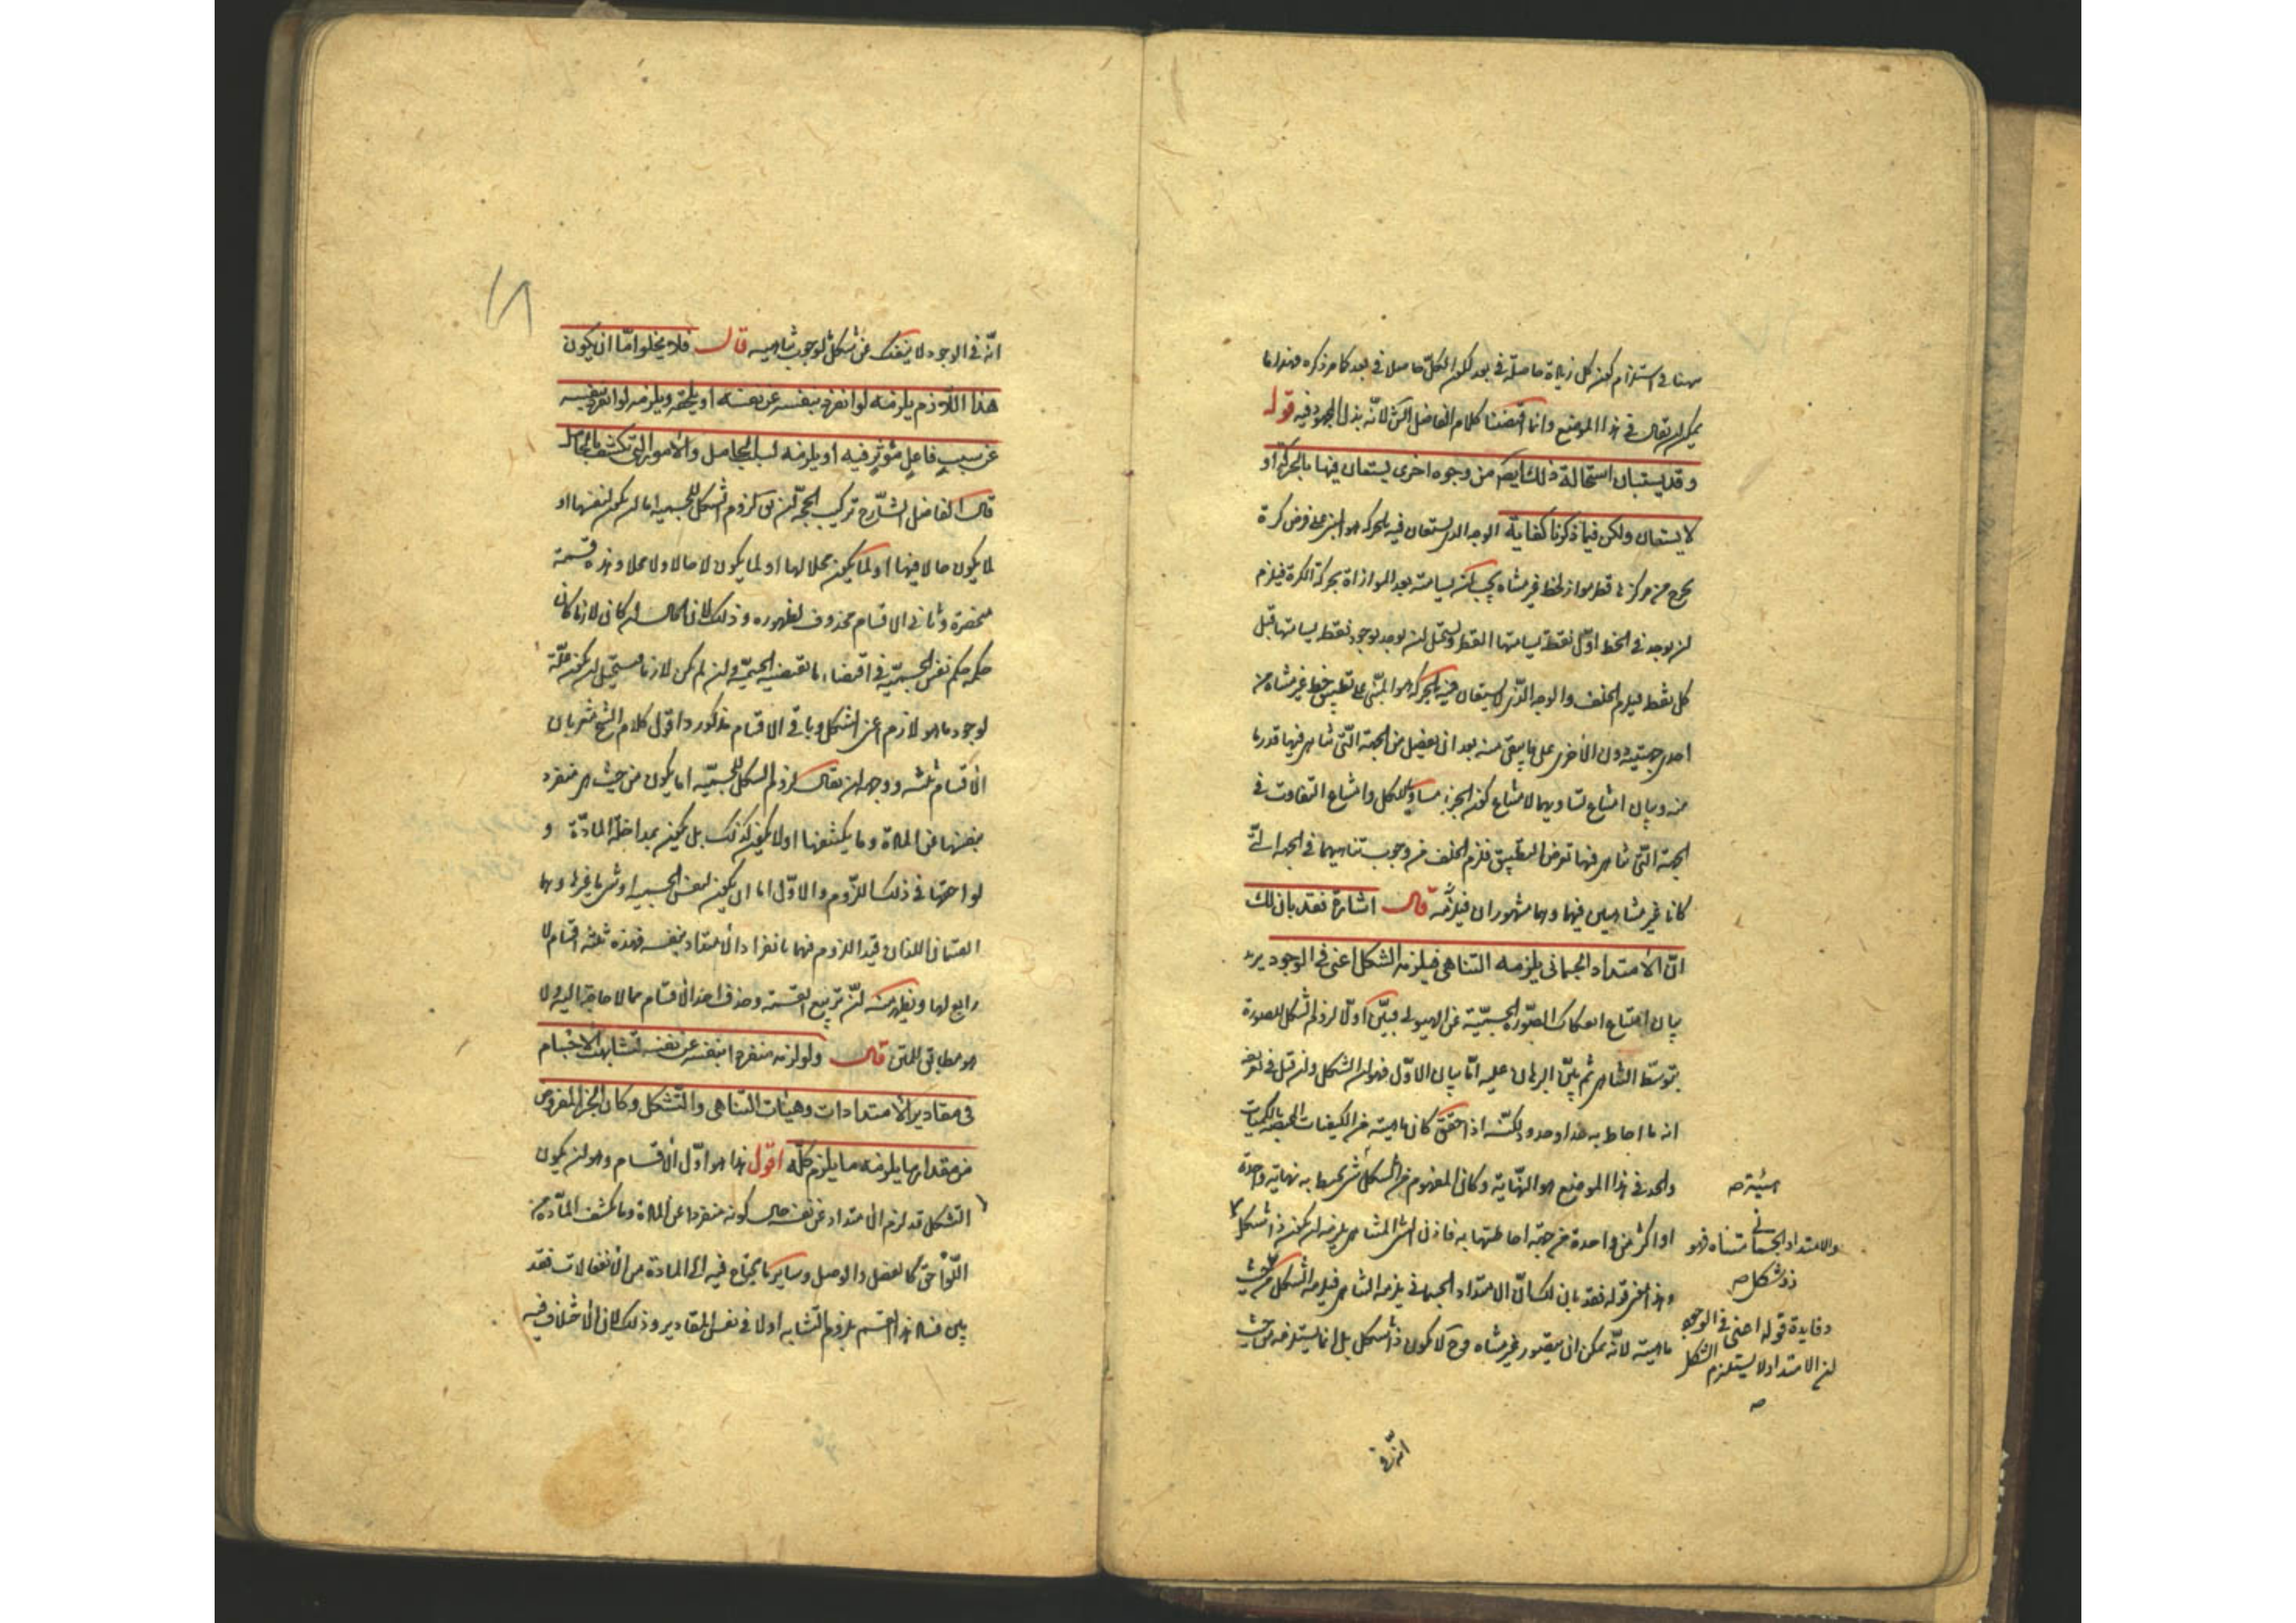 ههنا في استلزام كون كل زيادة حاصلة في بعد لكون الكل حاصلا في بعد كما مر ذكره فهذا ما
يمكن ان يقال في هذا الموضع وانما اقتصصنا كلام الفاضل الش لانه بذل المجهود فيه قوله
وقد يستبان استحالة ذلك ايضا من وجوه اخرى يستعان فيها بالحركة او
لا يستعان ولكن فيما ذكرنا كفاية الوجه الذي يستعان فيه بالحركة هو المبني على فرض كرة
يخرج من مركزها قطر مواز لخط غير متناه يجب ان يسامته بعد الموازاة بحركة الكرة فيلزم
ان يوجد في الخط اول نقطة يسامتها القطر ويستحيل ان يوجد لوجود نقطة يسامتها قبل
كل نقطة فيلزم الخلف والوجه الذي لا يستعان فيه بالحركة هو المبني على تطبيق خط غير متناه من
احدى جهتيه دون الاخرى على ما يبقى منه بعد ان يفصل من الجهة التي تناهى فيها قدر ما
منه وبيان امتناع تساويهما لامتناع كون الجزء مساويا للكل وامتناع التفاوت في
الجهة التي تناهى فيها لفرض التطبيق فلزم الخلف من وجوب تناهيهما في الجهة التي
كانا غير متناهيين فيها وهما مشهوران قال اشارة فقد بان لك
ان الامتداد الجسماني يلزمه التناهي فيلزمه الشكل اعني في الوجود يريد
بيان امتناع انفكاك الصورة الجسمية عن الهيولى فبين اولا لزوم الشكل للصورة
بتوسط التناهي ثم بين البرهان عليه اما بيان الاول فهو ان الشكل وان قيل في تعريفه
انه ما احاط به حد او حدود لكنه اذا حقق كان ماهيته من الكيفيات المختصة بالكميات
والحد في هذا الموضع هو النهاية وكان المفهوم من الشكل شيء يحيط به نهاية واحدة
او اكثر من واحدة من جهة احاطتها به فاذن الشيء المتناهي يلزمه ان يكون ذا شكل
وهذا معنى قوله فقد بان لك ان الامتداد الجسماني يلزمه التناهي فيلزمه الشكل من حيث
ماهيته لانه يمكن ان يتصور غير متناه وح لا يكون ذا شكل بل انما يستلزمه من حيث
هيئة صه
والامتداد الجسماني متناه فهو
ذو شكل صه
وفايدة قوله اعني في الوجود
ان الامتداد لا يستلزم الشكل
صه
انه في
انه في الوجود لا ينفك عن شكل لوجوب تناهيه قال فلا يخلو اما ان يكون
هذا اللازم يلزمه لو انفرد بنفسه عن نفسه او يلحقه ويلزمه لو انفرد بنفسه
عن سبب فاعل مؤثر فيه او يلزمه لسبب الحامل والامور التي تكتنف الحامل
قال الفاضل الشارح تركيب الحجة ان يق لزوم الشكل للجسمية اما ان يكون لنفسها او
لما يكون حالا فيها او لما يكون محلا لها او لما يكون لا حالا ولا محلا وهذه قسمة
منحصرة وثاني الاقسام محذوف لظهوره وذلك لان الحال ان كان لازما كان
حكمه حكم نفس الجسمية في اقتضاء ما تقتضيه الجسمية وان لم يكن لازما فيستحيل ان يكون علة
لوجود ما هو لازم اعني الشكل وباقي الاقسام مذكور واقول كلام الشيخ مشعر بان
الاقسام ثلثة ووجهه ان يقال لزوم الشكل للجسمية اما يكون من حيث هي منفردة
بنفسها عن المادة وما يكتنفها او لا يكون كذلك بل يكون بمداخلة المادة و
لواحقها في ذلك اللزوم والاول اما ان يكون لنفس الجسمية او شيء ما غيرها وهما
القسمان اللذان قيد اللزوم فيهما بانفراد الامتداد بنفسه فهذه ثلثة اقسام لا
رابع لها ويظهر منه ان تربيع القسمة وحذف احد الاقسام مما لا حاجة اليه ولا
هو مطابق للمتن قال ولو لزمه منفردا بنفسه عن نفسه لتشابهت الاجسام
في مقادير الامتدادات وهيئات التناهي والتشكل وكان الجزء المفروض
من مقدار ما يلزمه ما يلزم كله اقول هذا هو اول الاقسام وهو ان يكون
الشكل قد لزم الامتداد عن نفسه حال كونه منفردا عن المادة وما يكتنف المادة من
اللواحق كالفصل والوصل وساير ما يحتاج فيه الى المادة من الانفعالات فقد
بين فساد هذا القسم بلزوم التشابه اولا في نفس المقادير وذلك لان الاختلاف فيه